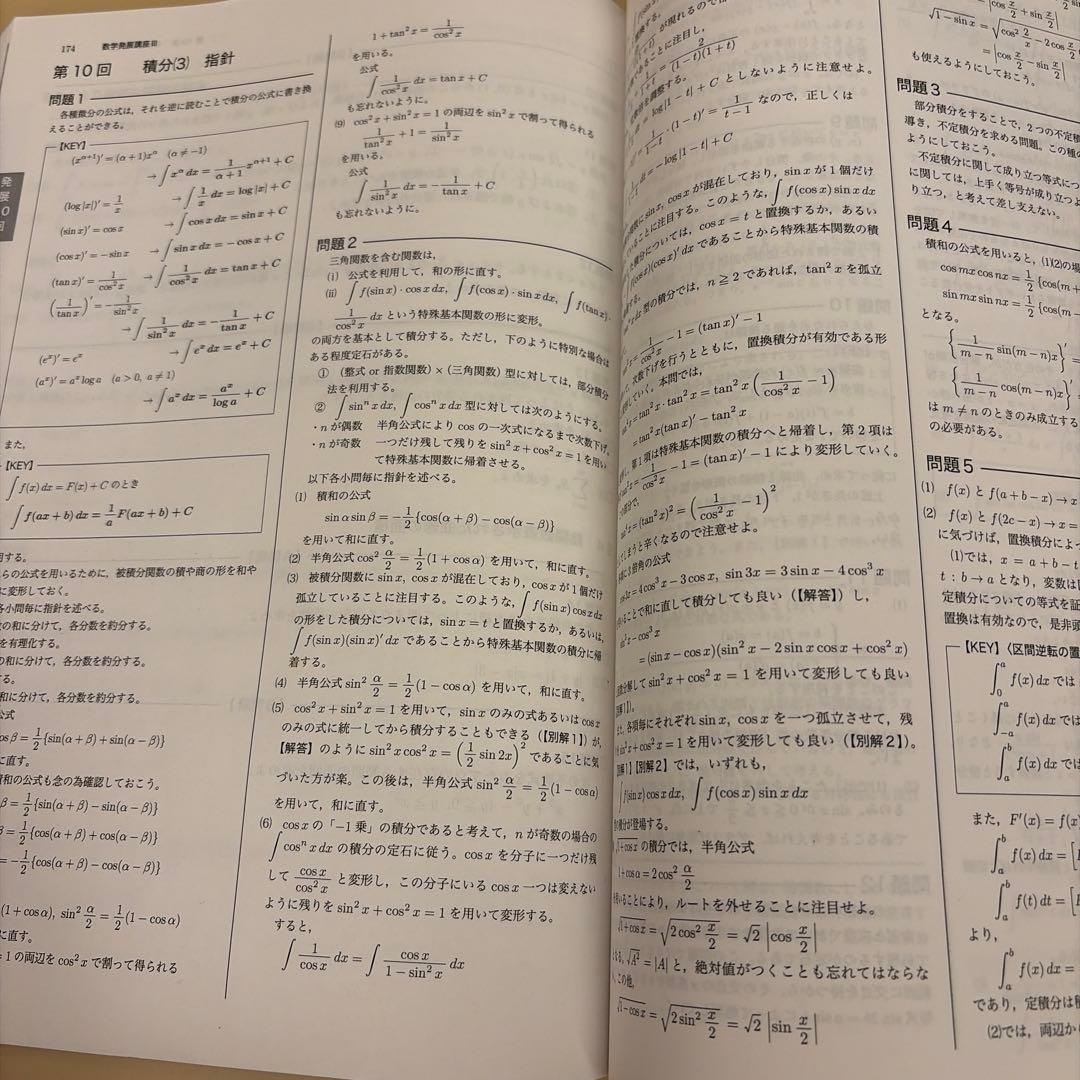 174 数学発展講座Ⅲ
第10回 積分(3) 指針
問題1
各種微分の公式は、それを逆に読むことで積分の公式に書き換
えることができる。
【KEY】
(x^{α+1})' = (α+1)x^α (α≠−1)
→ ∫x^α dx = 1/(α+1) x^{α+1} + C
(log|x|)' = 1/x → ∫1/x dx = log|x| + C
(sin x)' = cos x → ∫cos x dx = sin x + C
(cos x)' = −sin x → ∫sin x dx = −cos x + C
(tan x)' = 1/cos²x → ∫1/cos²x dx = tan x + C
(1/tan x)' = −1/sin²x
→ ∫1/sin²x dx = −1/tan x + C
(e^x)' = e^x → ∫e^x dx = e^x + C
(a^x)' = a^x log a (a>0, a≠1)
→ ∫a^x dx = a^x/log a + C
また,
【KEY】
∫f(x) dx = F(x) + C のとき
∫f(ax+b) dx = 1/a F(ax+b) + C
用する。
らの公式を用いるために，被積分関数の積や商の形を和や
に変形しておく。
各小問毎に指針を述べる。
の和に分けて，各分数を約分する。
を有理化する。
の和に分けて，各分数を約分する。
る。
和に分けて，各分数を約分する。
公式
cos β = 1/2{sin(α+β)+sin(α−β)}
に直す。
積和の公式も念の為確認しておこう。
β = 1/2{sin(α+β)−sin(α−β)}
β = 1/2{cos(α+β)+cos(α−β)}
= −1/2{cos(α+β)−cos(α−β)}
(1+cos α), sin² α/2 = 1/2(1−cos α)
に直す。
=1 の両辺を cos²x で割って得られる
1+tan²x = 1/cos²x
を用いる。
公式
∫1/cos²x dx = tan x + C
も忘れないように。
(9) cos²x+sin²x=1 の両辺を sin²x で割って得られる
1/tan²x + 1 = 1/sin²x
を用いる。
公式
∫1/sin²x dx = −1/tan x + C
も忘れないように。
問題2
三角関数を含む関数は，
(i) 公式を利用して，和の形に直す。
(ii) ∫f(sin x)·cos x dx, ∫f(cos x)·sin x dx, ∫f(tan x)·
1/cos²x dx という特殊基本関数の形に変形。
の両方を基本として積分する。ただし，下のように特別な場合は
ある程度定石がある。
① (整式 or 指数関数)×(三角関数) 型に対しては，部分積分
法を利用する。
② ∫sinⁿx dx, ∫cosⁿx dx 型に対しては次のようにする。
・n が偶数 半角公式により cos の一次式になるまで次数下げ。
・n が奇数 一つだけ残して残りを sin²x+cos²x=1 を用い
て特殊基本関数に帰着させる。
以下各小問毎に指針を述べる。
(1) 積和の公式
sin α sin β = −1/2{cos(α+β)−cos(α−β)}
を用いて和に直す。
(2) 半角公式 cos² α/2 = 1/2(1+cos α) を用いて，和に直す。
(3) 被積分関数に sin x, cos x が混在しており，cos x が1個だけ
孤立していることに注目する。このような，∫f(sin x) cos x dx
の形をした積分については，sin x = t と置換するか，あるいは，
∫f(sin x)(sin x)' dx であることから特殊基本関数の積分に帰
着する。
(4) 半角公式 sin² α/2 = 1/2(1−cos α) を用いて，和に直す。
(5) cos²x+sin²x=1 を用いて，sin x のみの式あるいは cos x
のみの式に統一してから積分することもできる（【別解1】）が，
【解答】のように sin²x cos²x = (1/2 sin 2x)² であることに気
づいた方が楽。この後は，半角公式 sin² α/2 = 1/2(1−cos α)
を用いて，和に直す。
(6) cos x の「−1乗」の積分であると考えて，n が奇数の場合の
∫cosⁿx dx の積分の定石に従う。cos x を分子に一つだけ残
して cos x/cos²x と変形し，この分子にいる cos x 一つは変えない
ように残りを sin²x+cos²x=1 を用いて変形する。
すると，
∫1/cos x dx = ∫cos x/(1−sin²x) dx
が現れるので
であることに注目し，
2/((1−t)(1+t))
を調整する。
log|1−t|+C としないように注意せよ。
1/(1−t)·(1−t)' = 1/(t−1) なので，正しくは
dt = −log|1−t|+C
sin x, cos x が混在しており，sin x が1個だけ
ことに注目する。このような，∫f(cos x) sin x dx
積分については，cos x = t と置換するか，あるい
f(cos x)(cos x)' dx であることから特殊基本関数の積
する。
dx 型の積分では，n≧2 であれば，tan²x を孤立
1/cos²x − 1 = (tan x)' − 1
次数下げを行うとともに，置換積分が有効である形
していく。本問では，
= tan²x·tan²x = tan²x(1/cos²x − 1)
= tan²x(tan x)' − tan²x
第1項は特殊基本関数の積分へと帰着し，第2項は
1/cos²x − 1 = (tan x)' − 1 により変形していく。
= (tan²x)² = (1/cos²x − 1)²
してしまうと辛くなるので注意せよ。
3倍角の公式
= 4cos³x − 3cos x, sin 3x = 3 sin x − 4cos³x
いることで和に直して積分しても良い（【解答】）し，
−cos³x
= (sin x − cos x)(sin²x − 2 sin x cos x + cos²x)
分解して sin²x+cos²x=1 を用いて変形しても良い
解1】）。
各項毎にそれぞれ sin x, cos x を一つ孤立させて，残
sin²x+cos²x=1 を用いて変形しても良い（【別解2】）。
解1】【別解2】では，いずれも，
∫f(sin x) cos x dx, ∫f(cos x) sin x dx
の積分が登場する。
√(1+cos x) の積分では，半角公式
1+cos α = 2cos² α/2
いることにより，ルートを外せることに注目せよ。
√(1+cos x) = √(2cos² x/2) = √2 |cos x/2|
√A² = |A| と，絶対値がつくことも忘れてはならな
この他，
√(1−cos x) = √(2sin² x/2) = √2 |sin x/2|
|cos x/2 + sin x/2|
√(1−sin x) = √(cos² x/2 − 2cos
= |cos x/2 − sin x/2|
も使えるようにしておこう。
問題3
部分積分をすることで，2つの不定積
導き，不定積分を求める問題。この種の
ようにしておこう。
不定積分に関して成り立つ等式につ
に関しては，上手く等号が成り立つよ
り立つ，と考えて差し支えない。
問題4
積和の公式を用いると，(1)(2)の場
cos mx cos nx = 1/2{cos(m+
sin mx sin nx = 1/2{cos(m
となる。
{1/(m−n) sin(m−n)x}' =
{1/(m−n) cos(m−n)x}'
は m≠n のときのみ成立する
の必要がある。
問題5
(1) f(x) と f(a+b−x) → x
(2) f(x) と f(2c−x) → x =
に気づけば，置換積分によっ
(1)では，x = a+b−t
t : b→a となり，変数は
定積分についての等式を証
置換は有効なので，是非
【KEY】〈区間逆転の置
∫₀^a f(x) dx では
∫₋ₐ^a f(x) dx では
∫ₐ^b f(x) dx では
また，F'(x) = f(x)
∫ₐ^b f(x) dx = [
∫ₐ^b f(t) dt = [
より，
∫ₐ^b f(x) dx =
であり，定積分は積
(2)では，両辺から
発
展